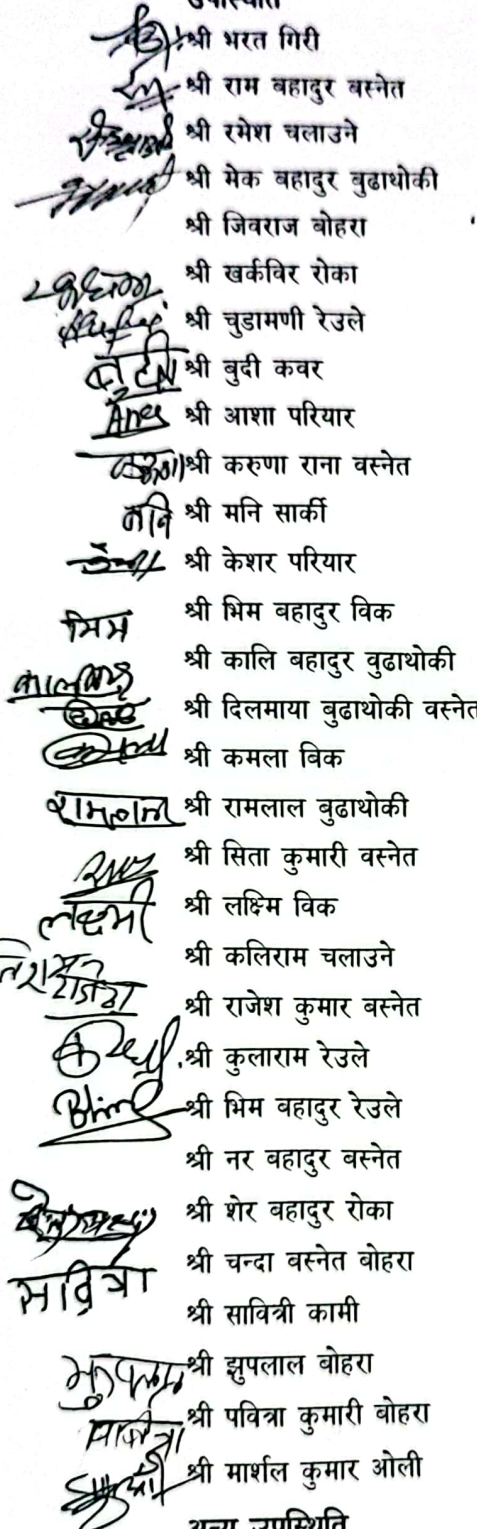 उपस्थिति
श्री भरत गिरी
श्री राम बहादुर बस्नेत
श्री रमेश चलाउने
श्री मेक बहादुर बुढाथोकी
श्री जिवराज बोहरा
श्री खर्कविर रोका
श्री चुडामणी रेउले
श्री बुदी कवर
श्री आशा परियार
श्री करुणा राना वस्नेत
मनि श्री मनि सार्की
श्री केशर परियार
भिम श्री भिम बहादुर विक
श्री कालि बहादुर बुढाथोकी
श्री दिलमाया बुढाथोकी वस्नेत
श्री कमला विक
रामलाल श्री रामलाल बुढाथोकी
श्री सिता कुमारी वस्नेत
लक्ष्मी श्री लक्ष्मि विक
श्री कलिराम चलाउने
श्री राजेश कुमार बस्नेत
श्री कुलाराम रेउले
श्री भिम बहादुर रेउले
श्री नर बहादुर बस्नेत
श्री शेर बहादुर रोका
श्री चन्दा वस्नेत बोहरा
सावित्रा श्री सावित्री कामी
श्री झुपलाल बोहरा
श्री पवित्रा कुमारी बोहरा
श्री मार्शल कुमार ओली
अन्य उपस्थिति